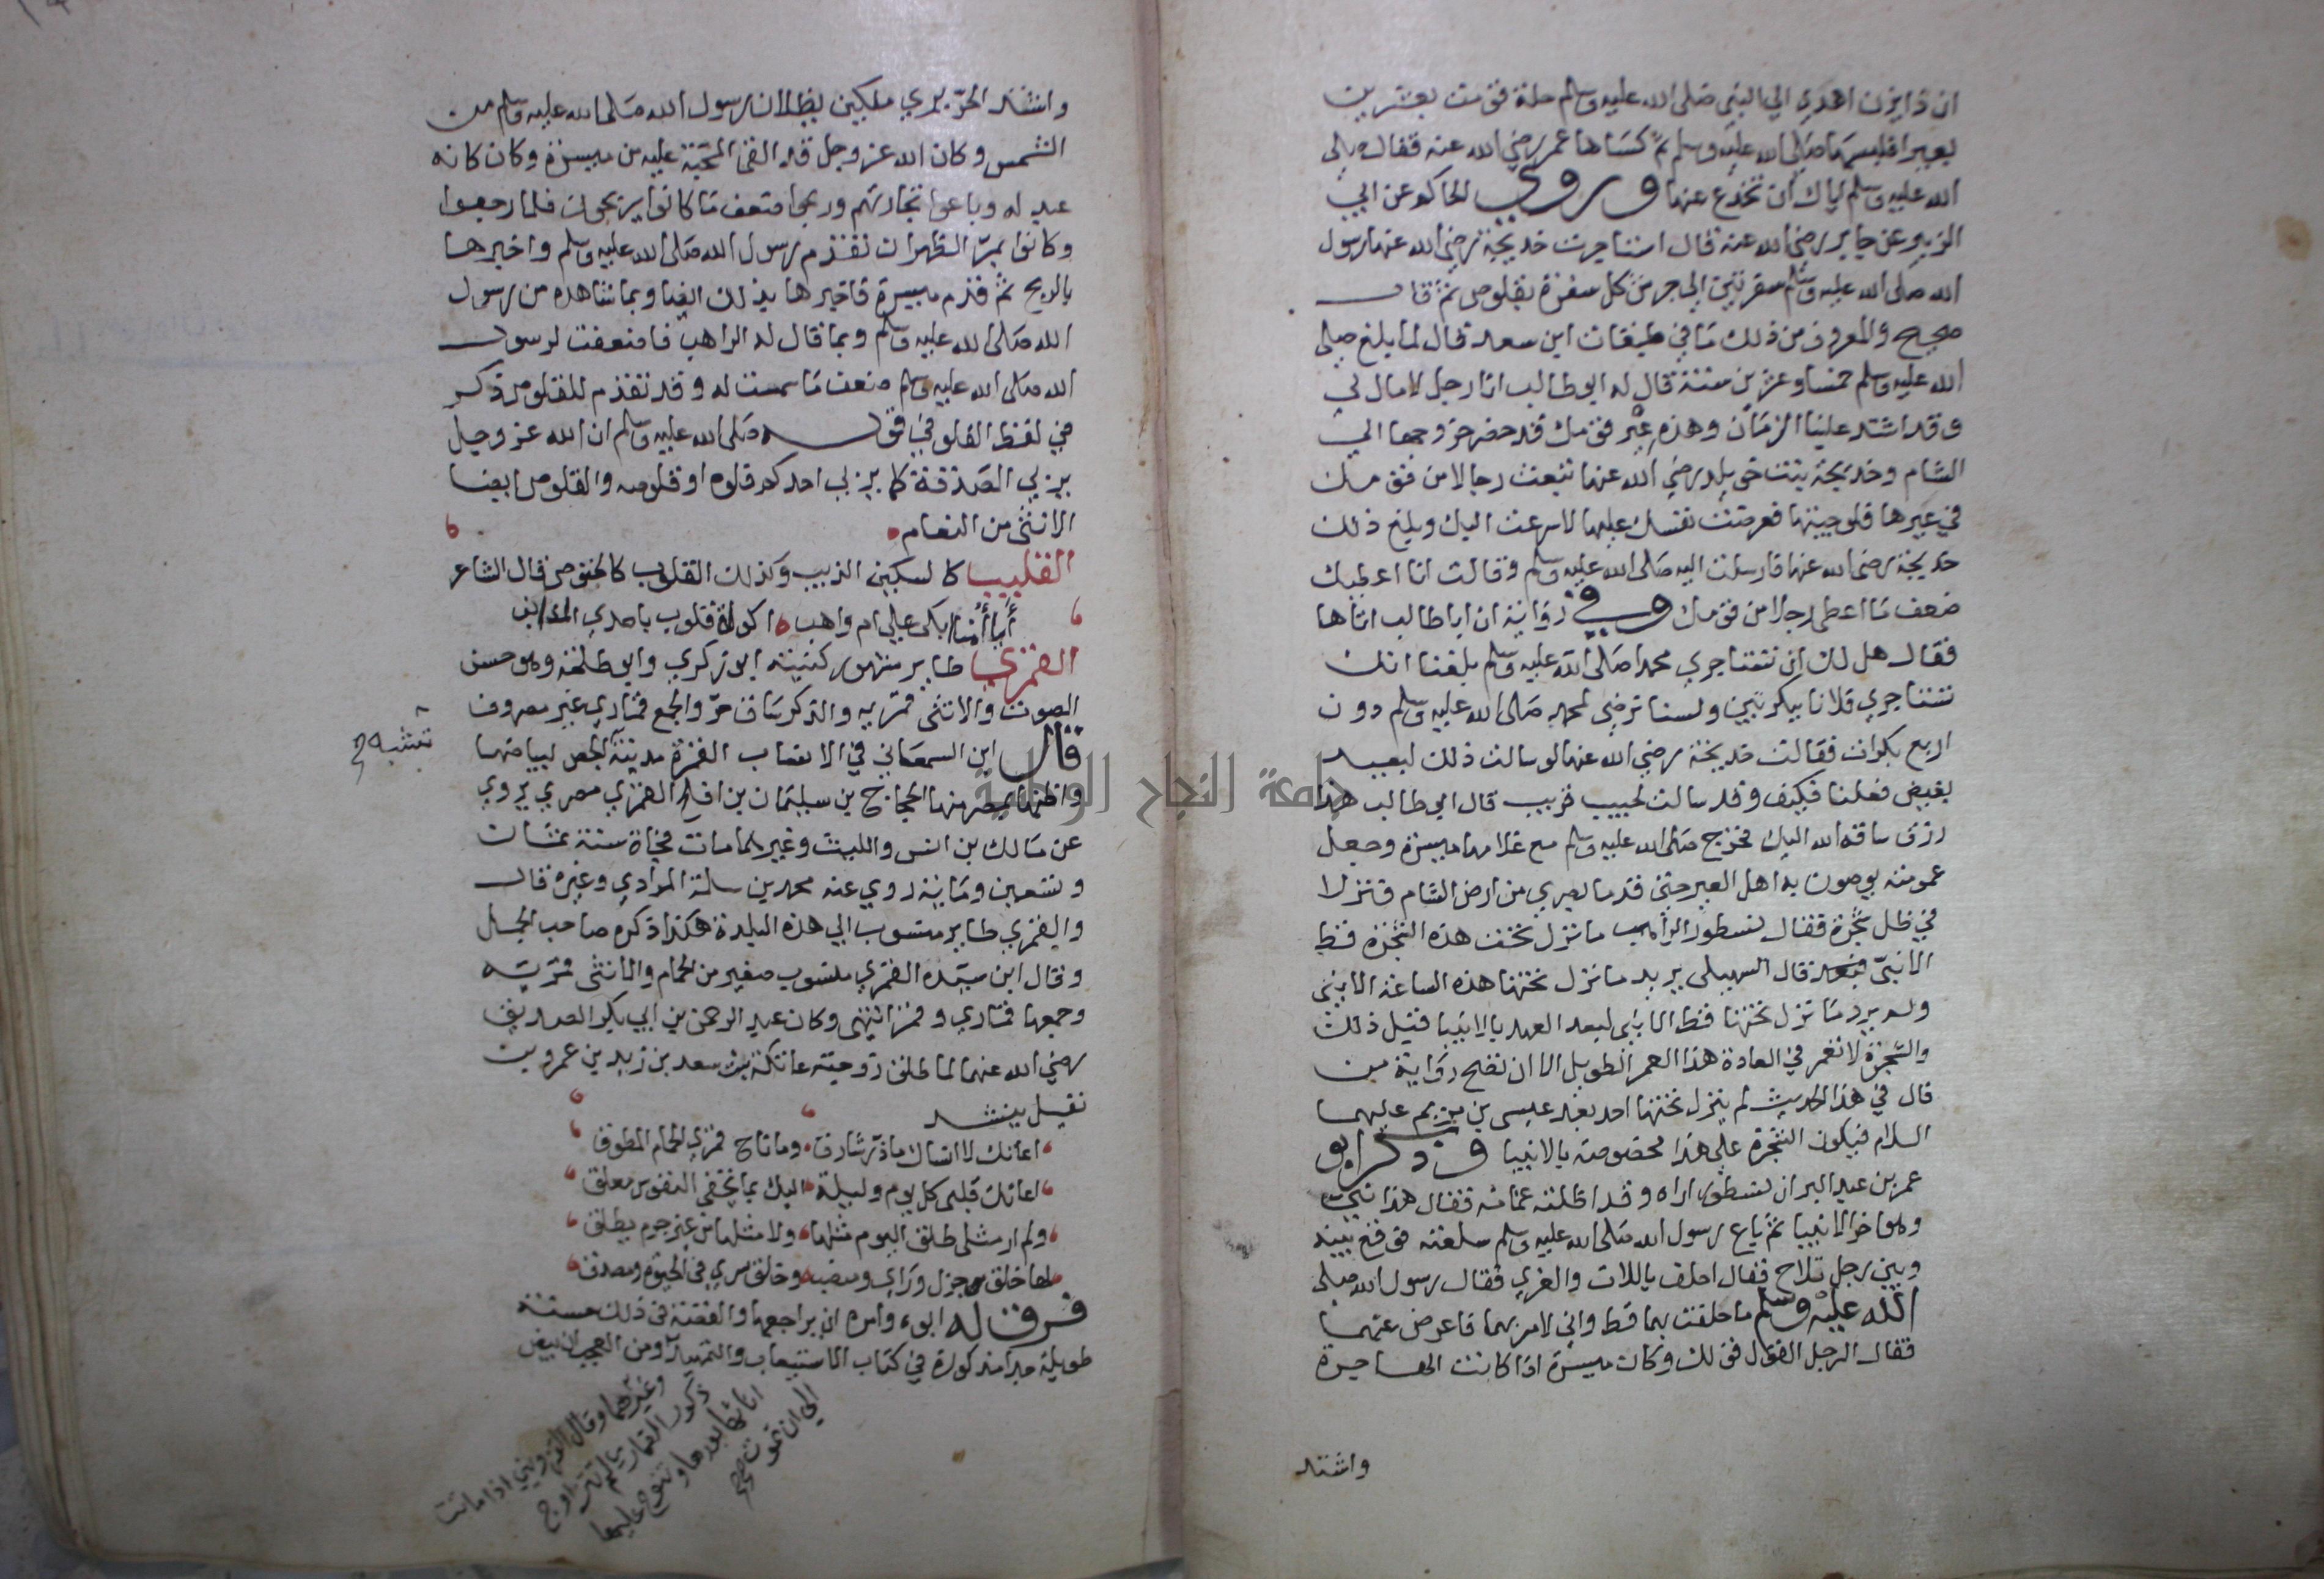 ان ذا يزن اهدى الي النبي صلى الله عليه وسلم حلة قومت بعشرين
بعيرا فلبسها صلى الله عليه وسلم ثم كساها عمر رضي الله عنه فقال صلى
الله عليه وسلم اياك ان تخدع عنها وروي الحاكم عن ابي
الزبير عن جابر رضي الله عنه قال استاجرت خديجة رضي الله عنها رسول
الله صلى الله عليه وسلم سفرتين الي جرش كل سفرة بقلوص ثم قال
صحيح والمعروف من ذلك ما في طبقات ابن سعد قال لما بلغ صلى
الله عليه وسلم خمسا وعشرين سنة قال له ابو طالب انا رجل لا مال لي
وقد اشتد علينا الزمان وهذه عير قومك قد حضر خروجها الي
الشام وخديجة بنت خويلد رضي الله عنها تبعث رجالا من قومك
في عيرها فلو جيتها فعرضت نفسك عليها لاسرعت اليك وبلغ ذلك
خديجة رضي الله عنها فارسلت اليه صلى الله عليه وسلم وقالت انا اعطيك
ضعف ما اعطى رجلا من قومك وفي رواية ان ابا طالب اتاها
فقال هل لك ان تستاجري محمدا صلى الله عليه وسلم بلغنا انك
تستاجري فلانا ببكرتين ولسنا نرضي لمحمد صلى الله عليه وسلم دون
اربع بكرات فقالت خديجة رضي الله عنها لو سالت ذلك لبعيد
بغيض فعلنا فكيف وقد سالت لحبيب قريب قال ابو طالب هذا
رزق ساقه الله اليك فخرج صلى الله عليه وسلم مع غلامها ميسرة وجعل
عمومته يوصون به اهل العير حتى قدما بصري من ارض الشام فنزلا
في ظل شجرة فقال نسطور الراهب ما نزل تحت هذه الشجرة قط
الا نبي قال السهيلي يريد ما نزل تحتها هذه الساعة الا نبي
ولم يرد ما نزل تحتها قط الا نبي لبعد العهد بالانبيا قبل ذلك
والشجرة لا تعمر في العادة هذا العمر الطويل الا ان تصح رواية من
قال في هذا الحديث لم ينزل تحتها احد بعد عيسى بن مريم عليهما
السلام فتكون الشجرة على هذا مخصوصة بالانبيا وذكر ابو
عمر بن عبد البر ان نسطور اراه وقد اظلته غمامة فقال هذا نبي
وهو اخر الانبيا ثم باع رسول الله صلى الله عليه وسلم سلعته فوقع بينه
وبين رجل تلاح فقال احلف باللات والعزي فقال رسول الله صلى
الله عليه وسلم ما حلفت بهما قط واني لامر بهما فاعرض عنهما
فقال الرجل القول قولك وكان ميسرة اذا كانت الهاجرة
واشتد
واشتد الحر يري ملكين يظللان رسول الله صلى الله عليه وسلم من
الشمس وكان الله عز وجل قد القى المحبة عليه من ميسرة وكان كانه
عبد له وباعوا تجارتهم وربحوا ضعف ما كانوا يربحون فلما رجعوا
وكانوا بمر الظهران تقدم رسول الله صلى الله عليه وسلم واخبرها
بالربح ثم قدم ميسرة فاخبرها بذلك ايضا وبما شاهده من رسول
الله صلى الله عليه وسلم وبما قال له الراهب فاضعفت لرسول
الله صلى الله عليه وسلم ضعف ما سمت له وقد تقدم للقلوص ذكر
في لفظ الفلو في قوله صلى الله عليه وسلم ان الله عز وجل
يربي الصدقة كما يربي احدكم فلوه او قلوصه والقلوص ايضا
الانثى من النعام
القليب كالسكين الذيب وكذلك القلوب كالخنوص قال الشاعر
أيا أمنا بكى على ام واهب اكولة قلوب باحدي المذانب
القمري طاير مشهور كنيته ابو زكري وابو طلحة وهو حسن
الصوت والانثى قمرية والذكر ساق حر والجمع قماري غير مصروف
قال ابن السمعاني في الانساب القمرة مدينة الجص لبياضها
تشبه
واظنها بمصر منها الحجاج بن سليمان بن افلح القمري مصري يروي
عن مالك بن انس والليث وغيرهما مات فجاة سنة ثمان
وتسعين وماية روي عنه محمد بن سلمة المرادي وغيره قال
والقمري طاير منسوب الي هذه البلدة هكذا ذكره صاحب المجمل
وقال ابن سيده القمري منسوب صغير من الحمام والانثى قمرية
وجمعها قماري وقمر انتهى وكان عبد الرحمن بن ابي بكر الصديق
رضي الله عنهما لما طلق زوجته عاتكة بنت سعد بن زيد بن عمرو بن
نفيل ينشد
اعاتك لا انساك ما ذر شارق وما ناح قمري الحمام المطوق
اعاتك قلبي كل يوم وليلة اليك بما تخفي النفوس معلق
ولم ار مثلي طلق اليوم مثلها ولا مثلها من غير جرم يطلق
لها خلق جزل وراي ومنصب وخلق سري في الحيوة ومصدق
فرق له ابوه وامره ان يراجعها والقصة في ذلك حسنة
طويلة جدا مذكورة في كتاب الاستيعاب والتمهيد ومن العجب ان بيض
وغيرهما وقال القزويني اذا ماتت
ذكور القماري لم تتزاوج
اناثها بعدها وتنوح عليها
الي ان تموت صح